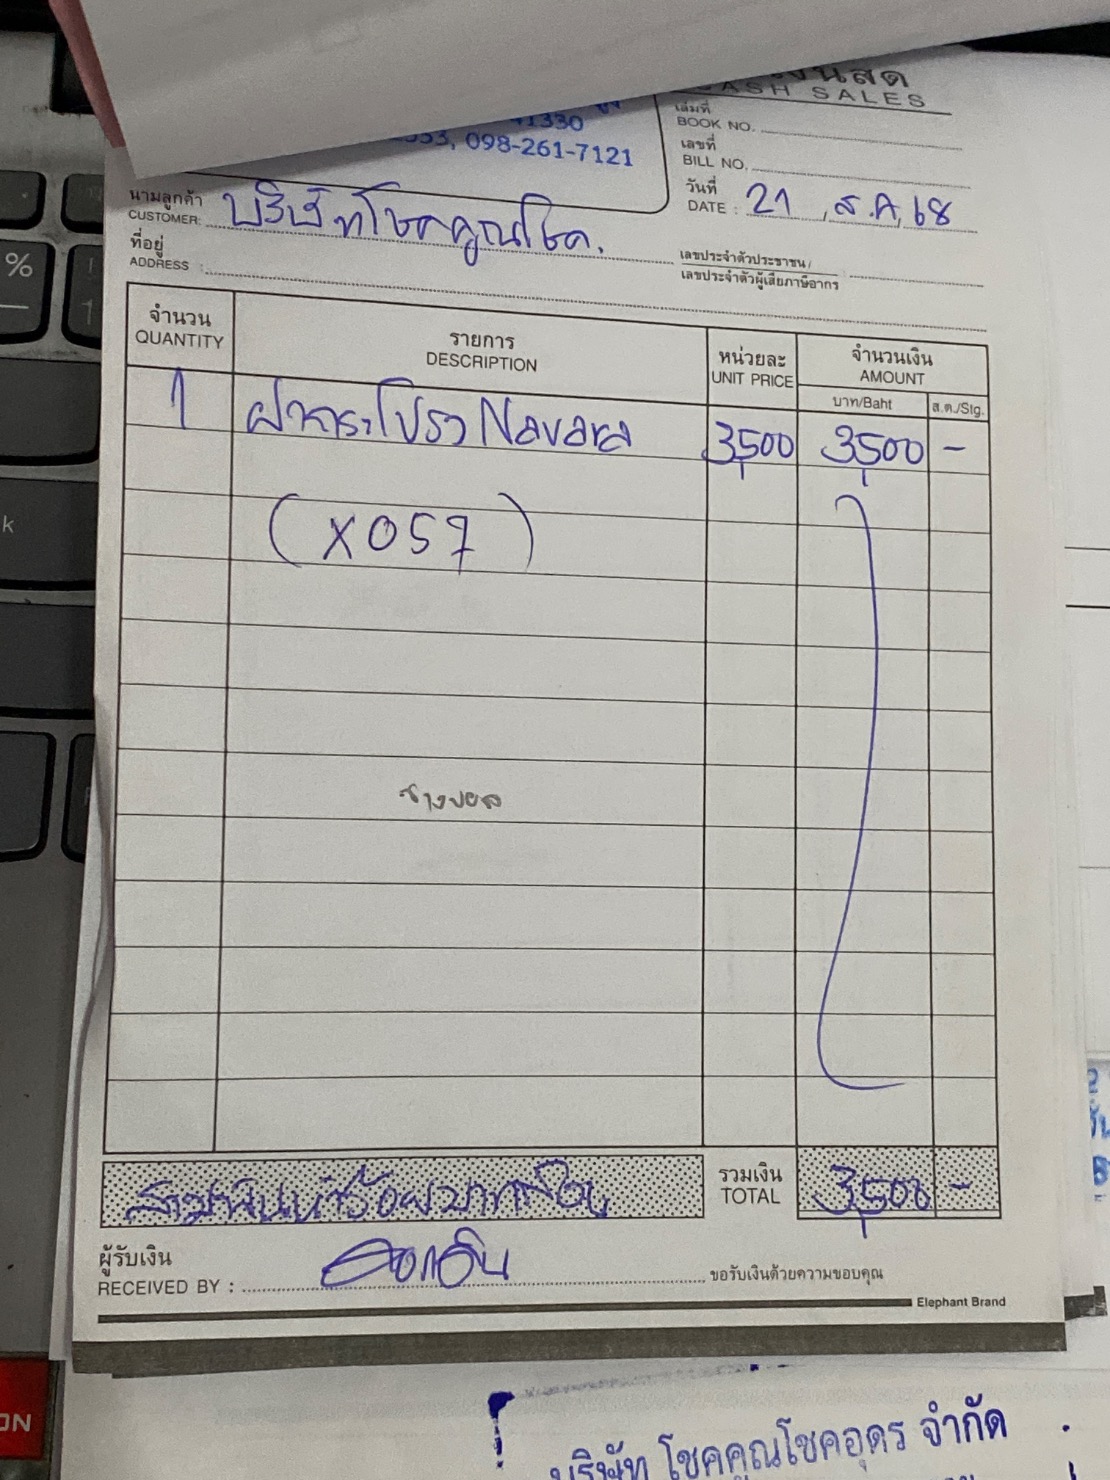 เงินสด
CASH SALES
41330
098-261-7121
เล่มที่
BOOK NO.
เลขที่
BILL NO.
วันที่
DATE : 21 ส.ค. 68
นามลูกค้า
CUSTOMER: บริษัทโชคคูณโชค.
ที่อยู่
ADDRESS :
เลขประจำตัวประชาชน/
เลขประจำตัวผู้เสียภาษีอากร
จำนวน รายการ หน่วยละ จำนวนเงิน
QUANTITY DESCRIPTION UNIT PRICE AMOUNT
บาท/Baht ส.ต./Stg.
1 ฝากระโปรง Navara 3,500 3,500 -
(X057)
ช่างบอล
สามพันห้าร้อยบาทถ้วน รวมเงิน TOTAL 3,500 -
ผู้รับเงิน
RECEIVED BY : ขอรับเงินด้วยความขอบคุณ
Elephant Brand
บริษัท โชคคูณโชคอุดร จำกัด